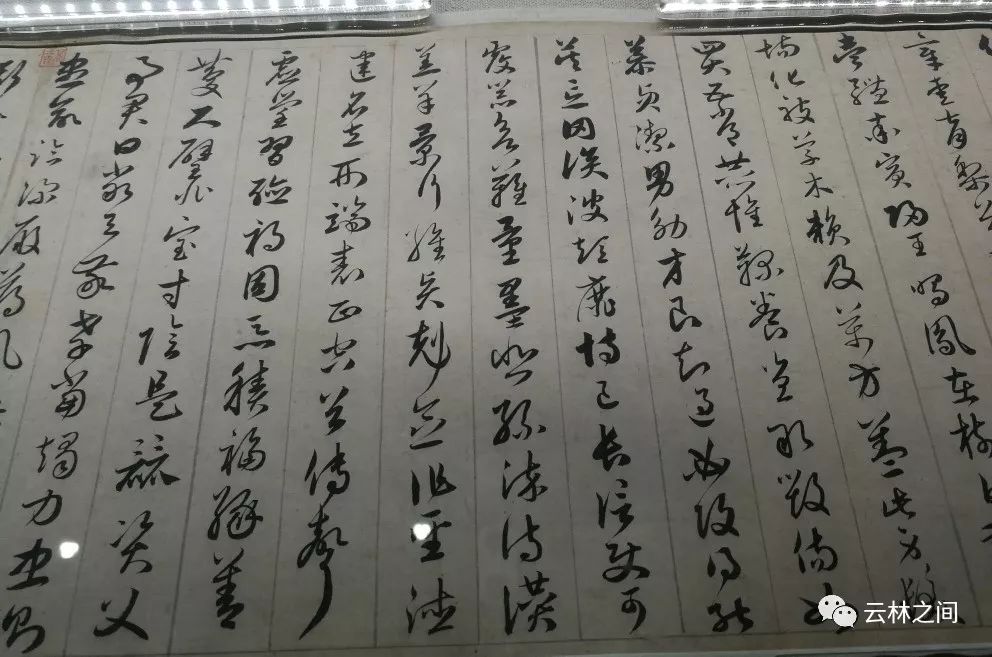 章愛育黎
壹體率賓歸王鳴鳳在樹白
場化被草木賴及萬方蓋此身髮
四大五常恭惟鞠養豈敢毀傷女
慕貞潔男效才良知過必改得能
莫忘罔談彼短靡恃己長信使可
覆器欲難量墨悲絲染詩讚
羔羊景行維賢剋念作聖德
建名立形端表正空谷傳聲
虛堂習聽禍因惡積福緣善
慶尺璧非寶寸陰是競資父
事君曰嚴與敬孝當竭力忠則
盡命臨深履薄夙
云林之间